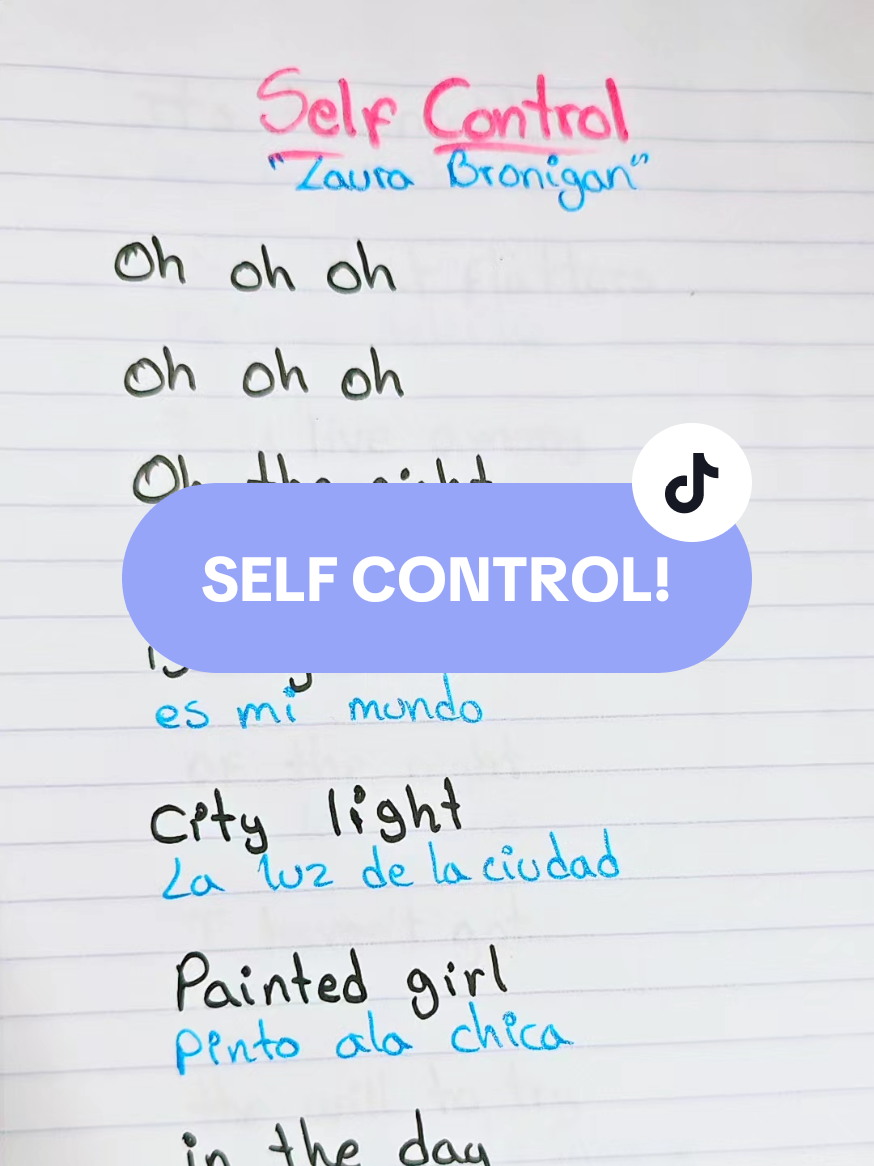 Self Control
"Laura Bronigan"
Oh oh oh
Oh oh oh
Oh the night
SELF CONTROL!
es mi mundo
City light
La luz de la ciudad
Painted girl
Pinto ala chica
in the day